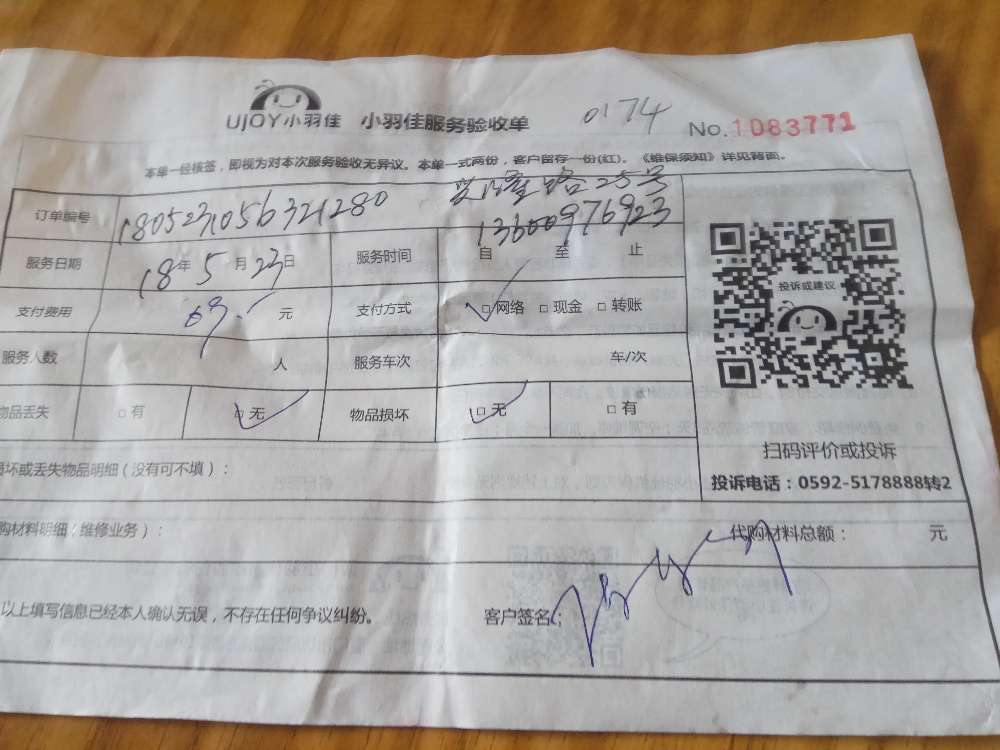 UJOY小羽佳 小羽佳服务验收单 0174 No.1083771
本单一经核签，即视为对本次服务验收无异议。本单一式两份，客户留存一份(红)。《维保须知》详见背面。
订单编号 1805231056321280 兴隆路25号
13600976923
服务日期 18年5月23日 服务时间 自 至 止
支付费用 69.- 元 支付方式 □网络 □现金 □转账
服务人数 人 服务车次 车/次
物品丢失 □有 □无 物品损坏 □无 □有
投诉或建议
扫码评价或投诉
投诉电话：0592-5178888转2
损坏或丢失物品明细（没有可不填）：
购材料明细（维修业务）： 代购材料总额： 元
以上填写信息已经本人确认无误，不存在任何争议纠纷。 客户签名：